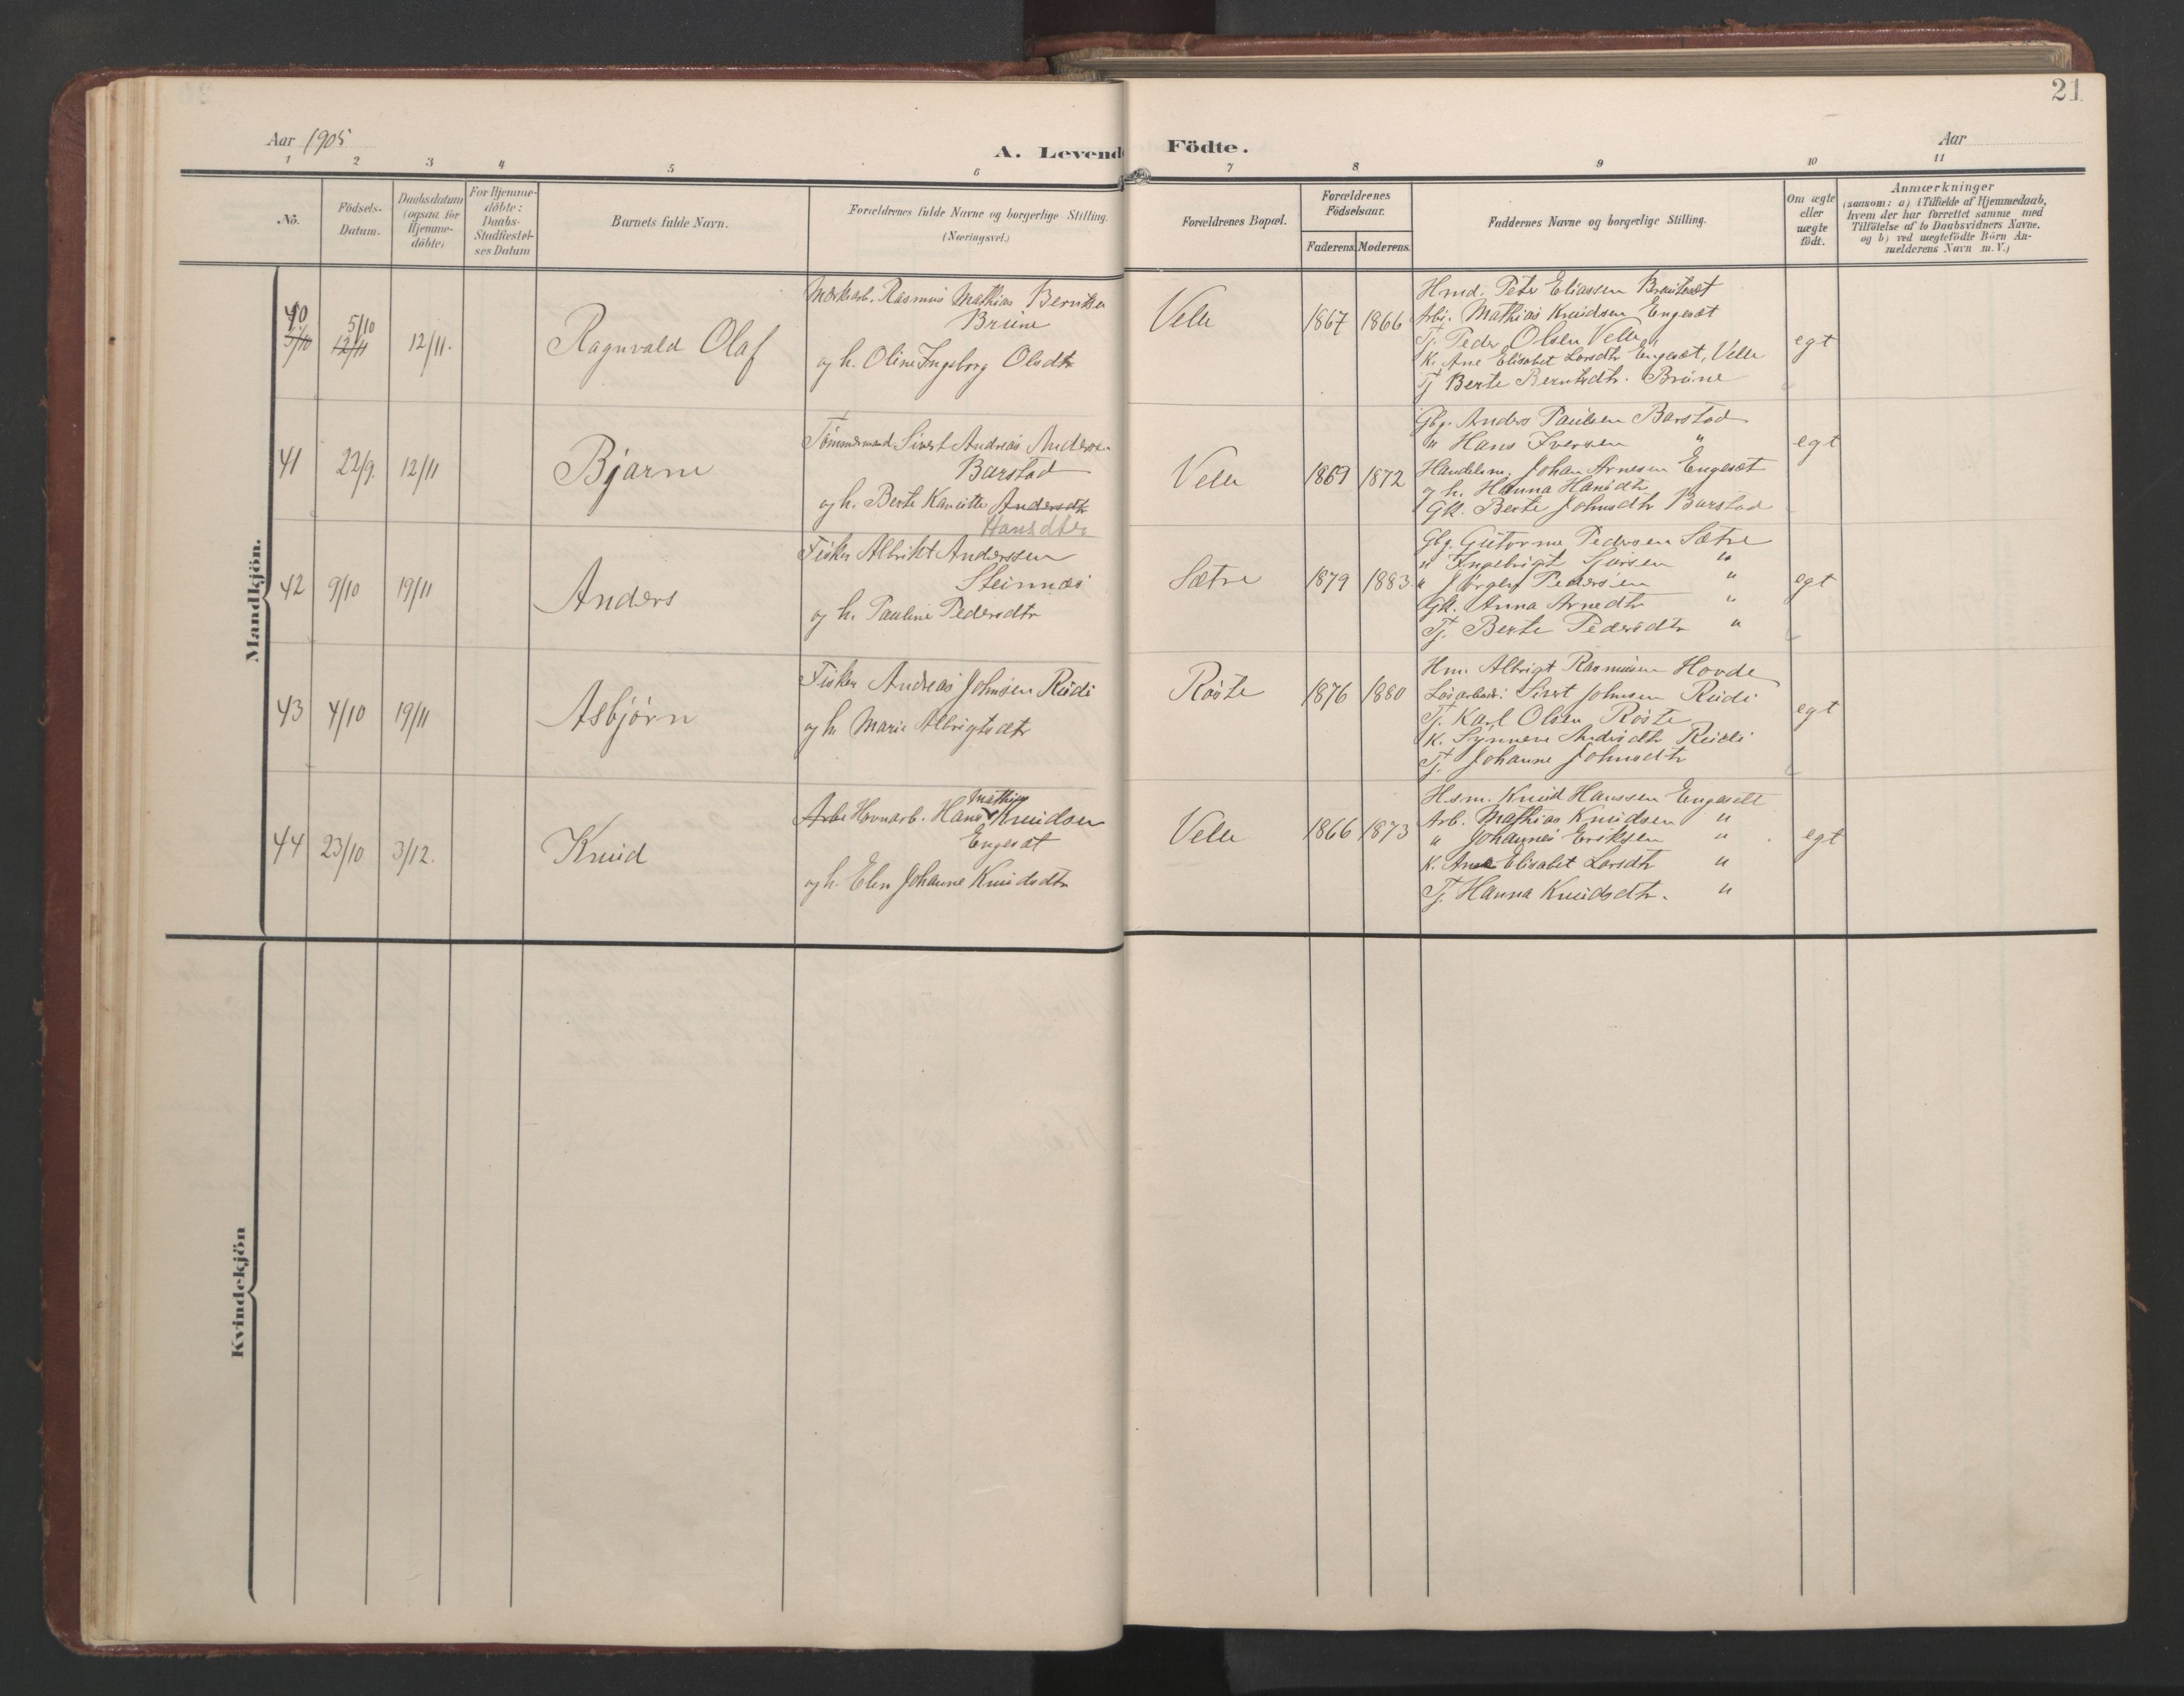 21
Aar 1905
A. Levende Födte.
Aar
1 2 3 4 5 6 7 8 9 10 11
No.
Födsels-
Datum.
Daabsdatum
(ogsaa for
Hjemme-
döbte)
For Hjemme-
döbte:
Daabs-
Stadfæstel-
ses Datum
Barnets fulde Navn.
Forældrenes fulde Navne og borgerlige Stilling.
(Næringsvei.)
Forældrenes Bopæl.
Forældrenes
Födselsaar.
Faderens. Moderens.
Faddernes Navne og borgerlige Stilling.
Om ægte
eller
uægte
födt.
Anmærkninger
(saasom: a) i Tilfælde af Hjemmedaab,
hvem der har forrettet samme med
Tilföielse af to Daabsvidners Navne.
og b) ved uægtefödte Börn An-
melderens Navn m. V.)
Mandkjön.
40
5/10
5/10
12/11
12/11.
Ragnvald Olaf
Rasmus Mathias Berntsen
Brune
og h. Oline Ingeborg Olsdtr
Velle
1867 1866
Hmd. Peter Eliassen
Arb. Mathias Knudsen Engesæt
Tj. Peder Olsen Velle
K. Ane Elisabet Larsdtr Engesæt, Velle
Tj Berte Berntsdtr. Brune
egt
41 22/9. 12/11
Bjarne
Tömmermand Sivert Andreas Anderse-
Barstad
og h. Berte Andersdtr
Hansdter
Velle
1869 1872
Gbg. Anders Paulsen Barstad
" Hans Iversen "
Handelsm. Johan Arnesen Engesæt
og h. Hanna Hansdtr
Gk. Berte Johnsdtr Barstad
egt
42 9/10 19/11
Anders
Fisker Albrikt Anderssen
Steinnæs
og h. Pauline Pedersdtr
Sætre
1879 1883
Gbg. Guttorm Pedersen Sætre
" Ingebrigt Sjursen "
" Jørgen Pedersen "
Gk. Anna Arnedtr "
Tj. Berte Pedersdtr "
egt
43 4/10 19/11
Asbjørn
Fisker Andreas Johnsen Rudi
og h. Marie Albrigtsdtr
Röste
1876 1880
Hm. Albrigt Rasmussen Hovde
Lösarbeid. Sivert Johnsen Rudi
Tj. Karl Olsen Röste
K. Synneve Andrsdtr Rudi
Tj. Johanne Johnsdtr
egt
44 23/10 3/12.
Knud
Arbe Havnarb. Hans Mathias Knudsen
Engesæt
og h. Elen Johanne Knudsdtr
Velle
1866 1873
H.s.m. Knud Hanssen Engesett
Arb. Mathias Knudsen "
" Johannes Eriksen "
K. Ane Elisabet Larsdtr "
Tj. Hanna Knudsdtr. "
egt
Kvindekjön